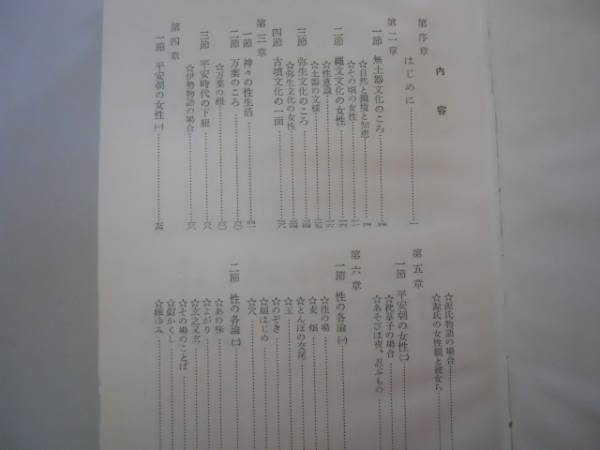 内容
第序章
はじめに……一
第二章
一節 無土器文化のころ
☆自然と環境と知恵
☆その頃の女性
二節 縄文文化の女性
☆性意識
☆土器の文様
三節 弥生文化のころ
☆弥生文化の女性
四節 古墳文化の一面
第三章
一節 神々の性生活
二節 万葉のころ
☆万葉の紐
三節 平安時代の下紐
☆伊勢物語の場合
第四章
一節 平安朝の女性㈠
☆源氏物語の場合
☆源氏の女性観と彼女ら
第五章
一節 平安朝の女性㈡
☆枕草子の場合
☆あそびは夜、忍ぶもの
第六章
一節 性の各論㈠
☆性の場
☆麦畑
☆とんぼの交尾
☆玉
☆のぞき
☆姫はじめ
☆穴
二節 性の各論㈡
☆あの味
☆よがり
☆玄之又玄
☆その場のことば
☆顔かくし